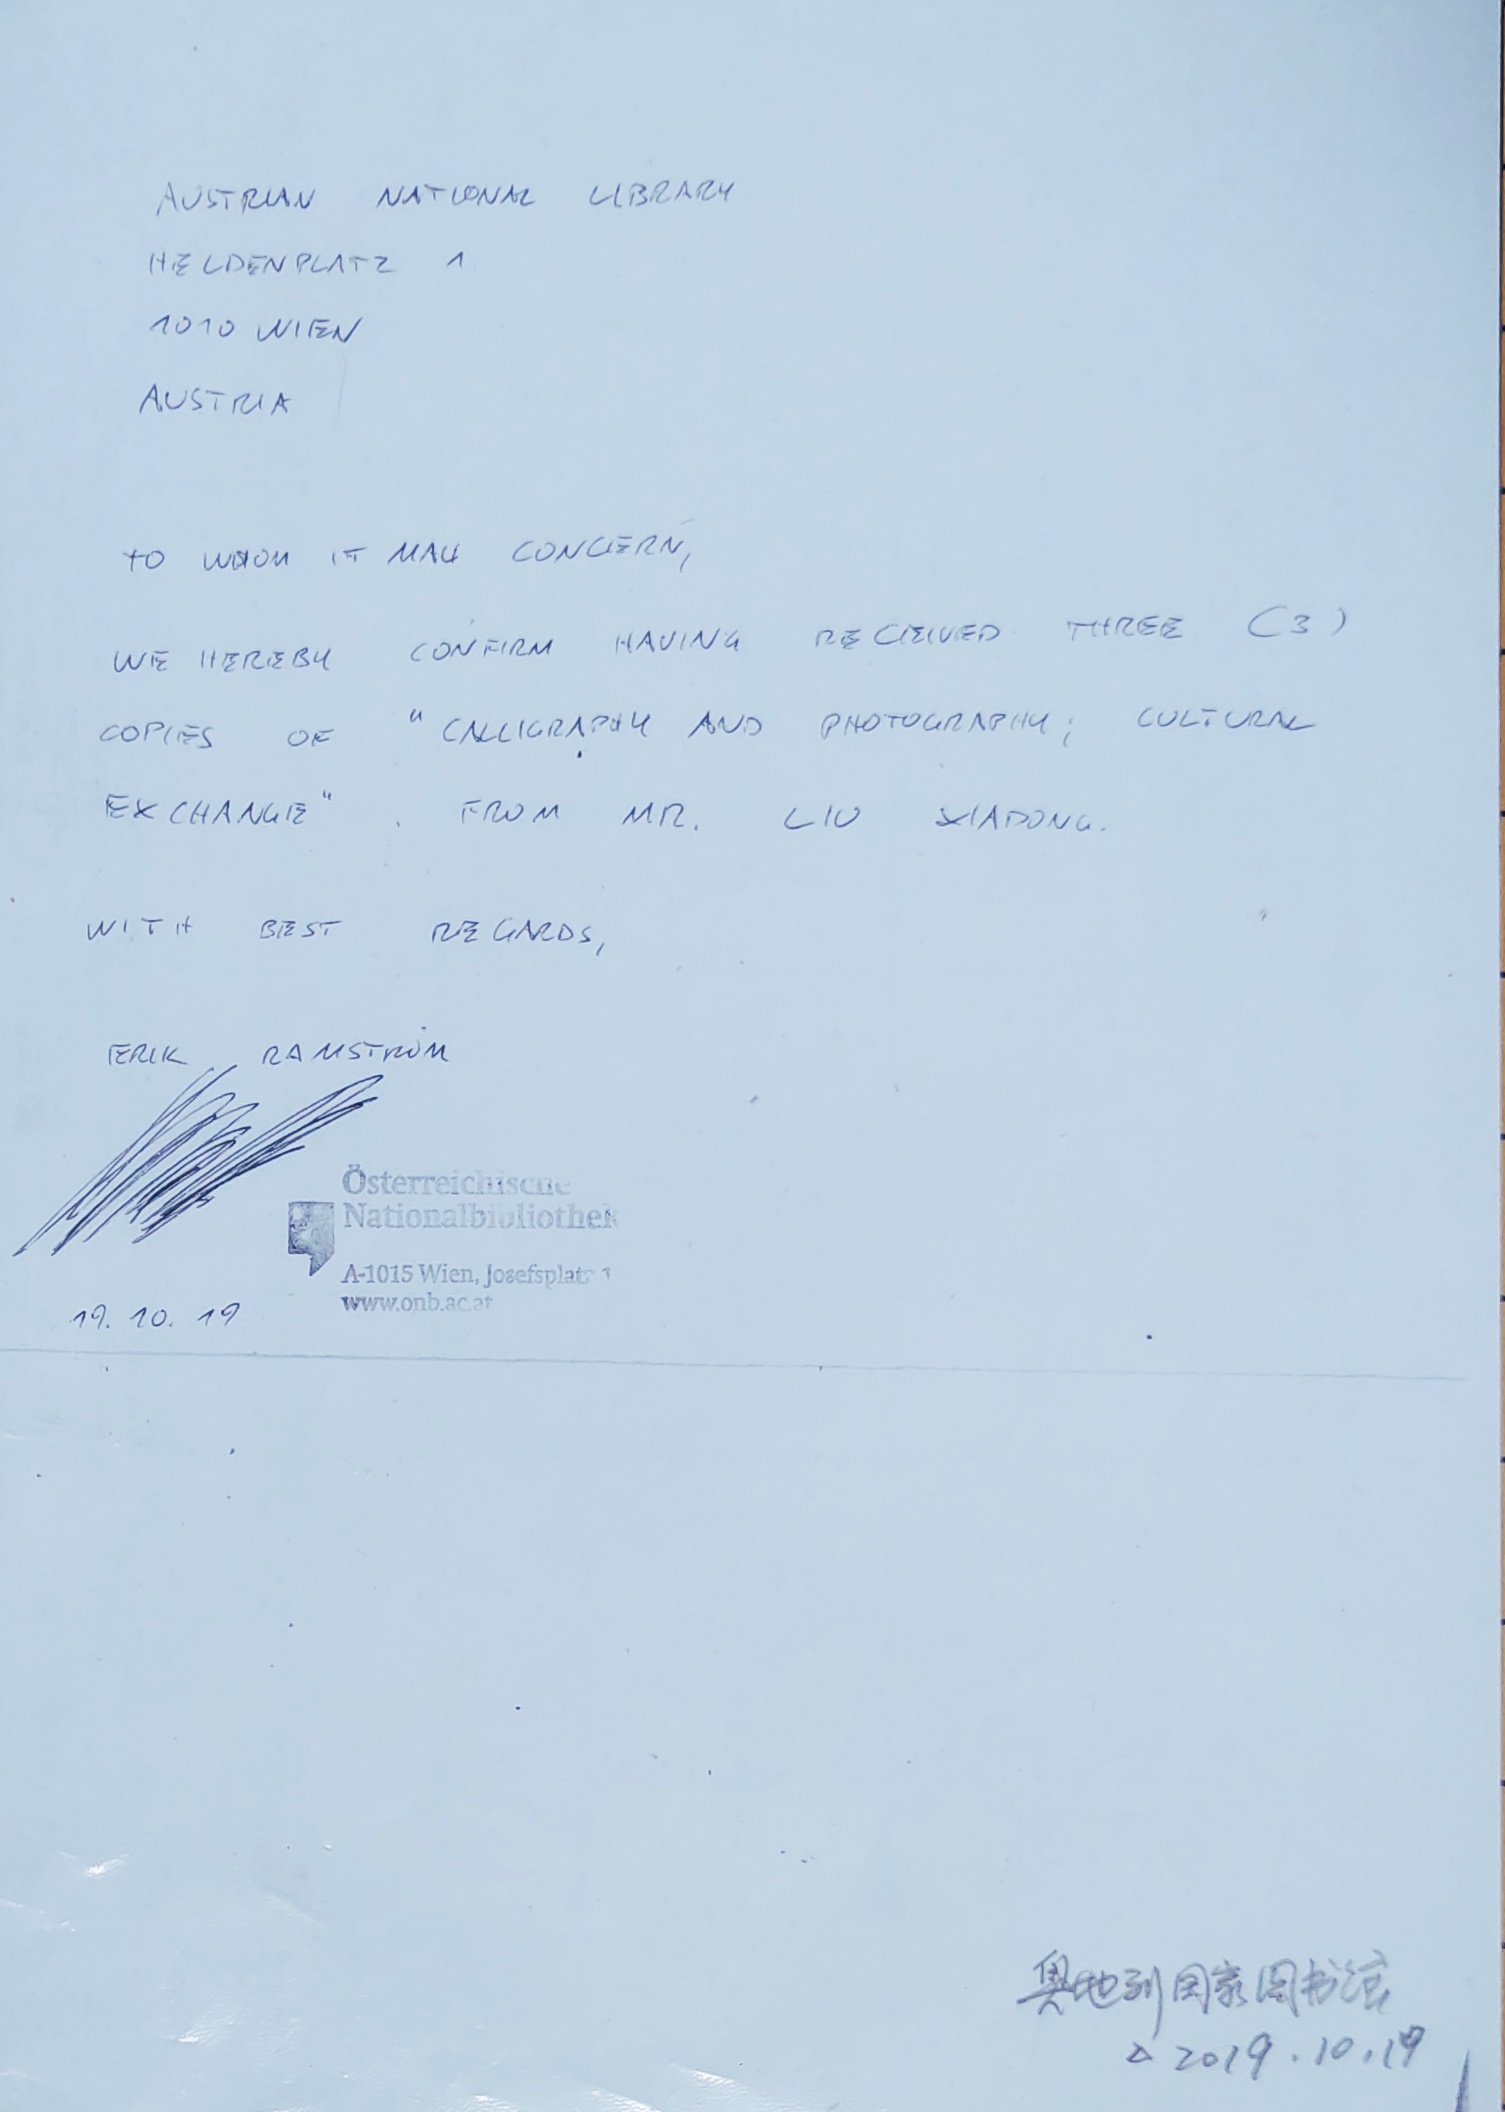 AUSTRIAN NATIONAL LIBRARY
HELDENPLATZ 1
1010 WIEN
AUSTRIA
TO WHOM IT MAY CONCERN,
WE HEREBY CONFIRM HAVING RECIEIVED THREE (3)
COPIES OF "CALLIGRAPHY AND PHOTOGRAPHY; CULTURAL
EXCHANGE". FROM MR. LIU XIADONG.
WITH BEST REGARDS,
ERIK RAMSTRÖM
Österreichische
Nationalbibliothek
A-1015 Wien, Josefsplatz 1
www.onb.ac.at
19. 10. 19
奥地利国家图书馆
△ 2019.10.19